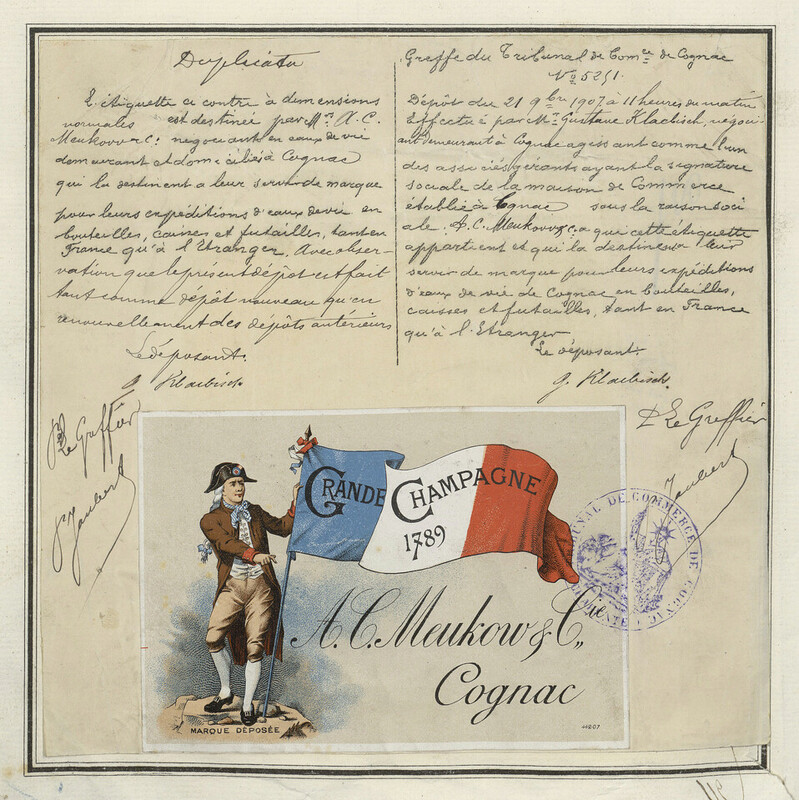 Duplicata
L'étiquette ci contre à dimensions
normales est destinée par Mr. A. C.
Meukow & Co. négociant en eaux de vie
demeurant et domicilié à Cognac
qui la destinent a leur servir de marque
pour leurs expéditions d'eaux de vie en
bouteilles, caisses et futailles, tant en
France qu'à l'Etranger, Avec obser-
vation que le présent dépôt est fait
tant comme dépôt nouveau qu'en
renouvellement des dépôts antérieurs
Le déposant.
G. Klaebisch
Pr Le Greffier
Joubert
Greffe du Tribunal de Comce de Cognac
No 5251.
Dépôt du 21 9bre 1907 à 11 heures du matin
Effectué par Mr. Gustave Klaebisch, négoci-
ant demeurant à Cognac agissant comme l'un
des associés gérants ayant la signature
sociale de la maison de Commerce
établie à Cognac sous la raison soci
ale A. C. Meukow & Co a qui cette étiquette
appartient et qui la destinent a leur
servir de marque pour leurs expéditions
d'eaux de vie de Cognac en bouteilles,
caisses et futailles, tant en France
qu'à l'Etranger
Le déposant.
G. Klaebisch.
Pr Le Greffier
Joubert
GRANDE CHAMPAGNE
1789
A. C. Meukow & Cie,,
Cognac
MARQUE DÉPOSÉE
TRIBUNAL DE COMMERCE DE COGNAC